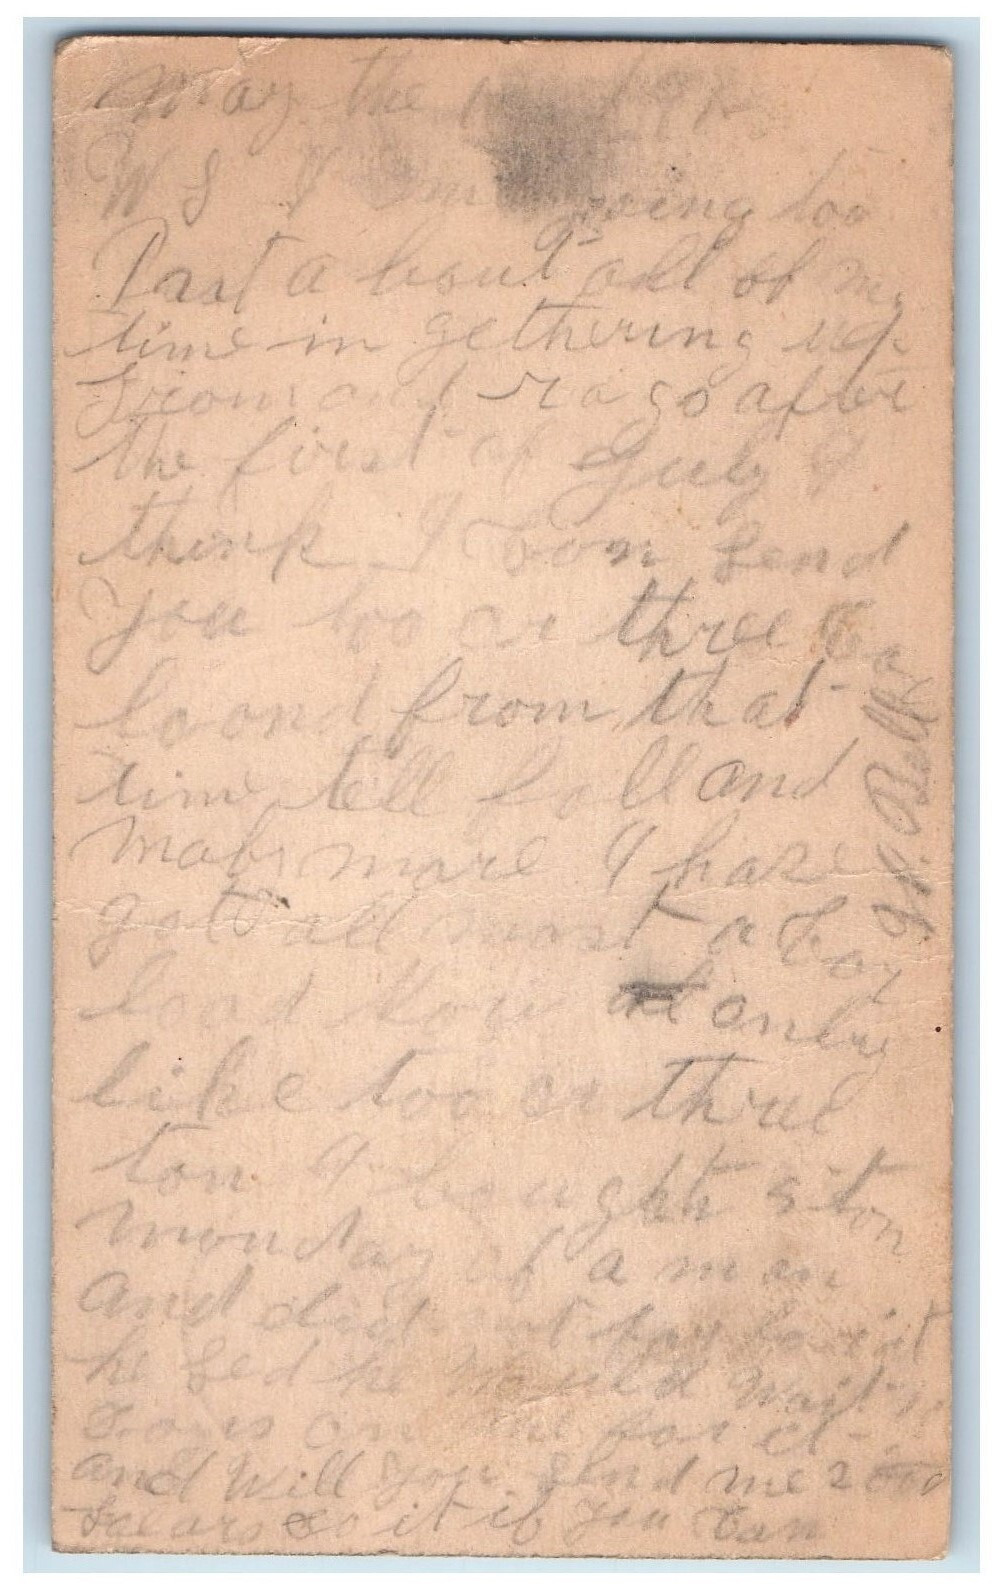 May the
W S I am going too
Past a bout all of my
time in gethering up
Iron and rags after
the first of July I
think I Can Send
you too or three Car
load from that
time tell fall and
Maby more I have
gott all most a Car
load Now
like too or three
ton I bought 5 ton
Monday of a man
And did not pay for it
he Sed he Would Wait
on me for it
And Will you Send me
if you Can
J. K. Bell